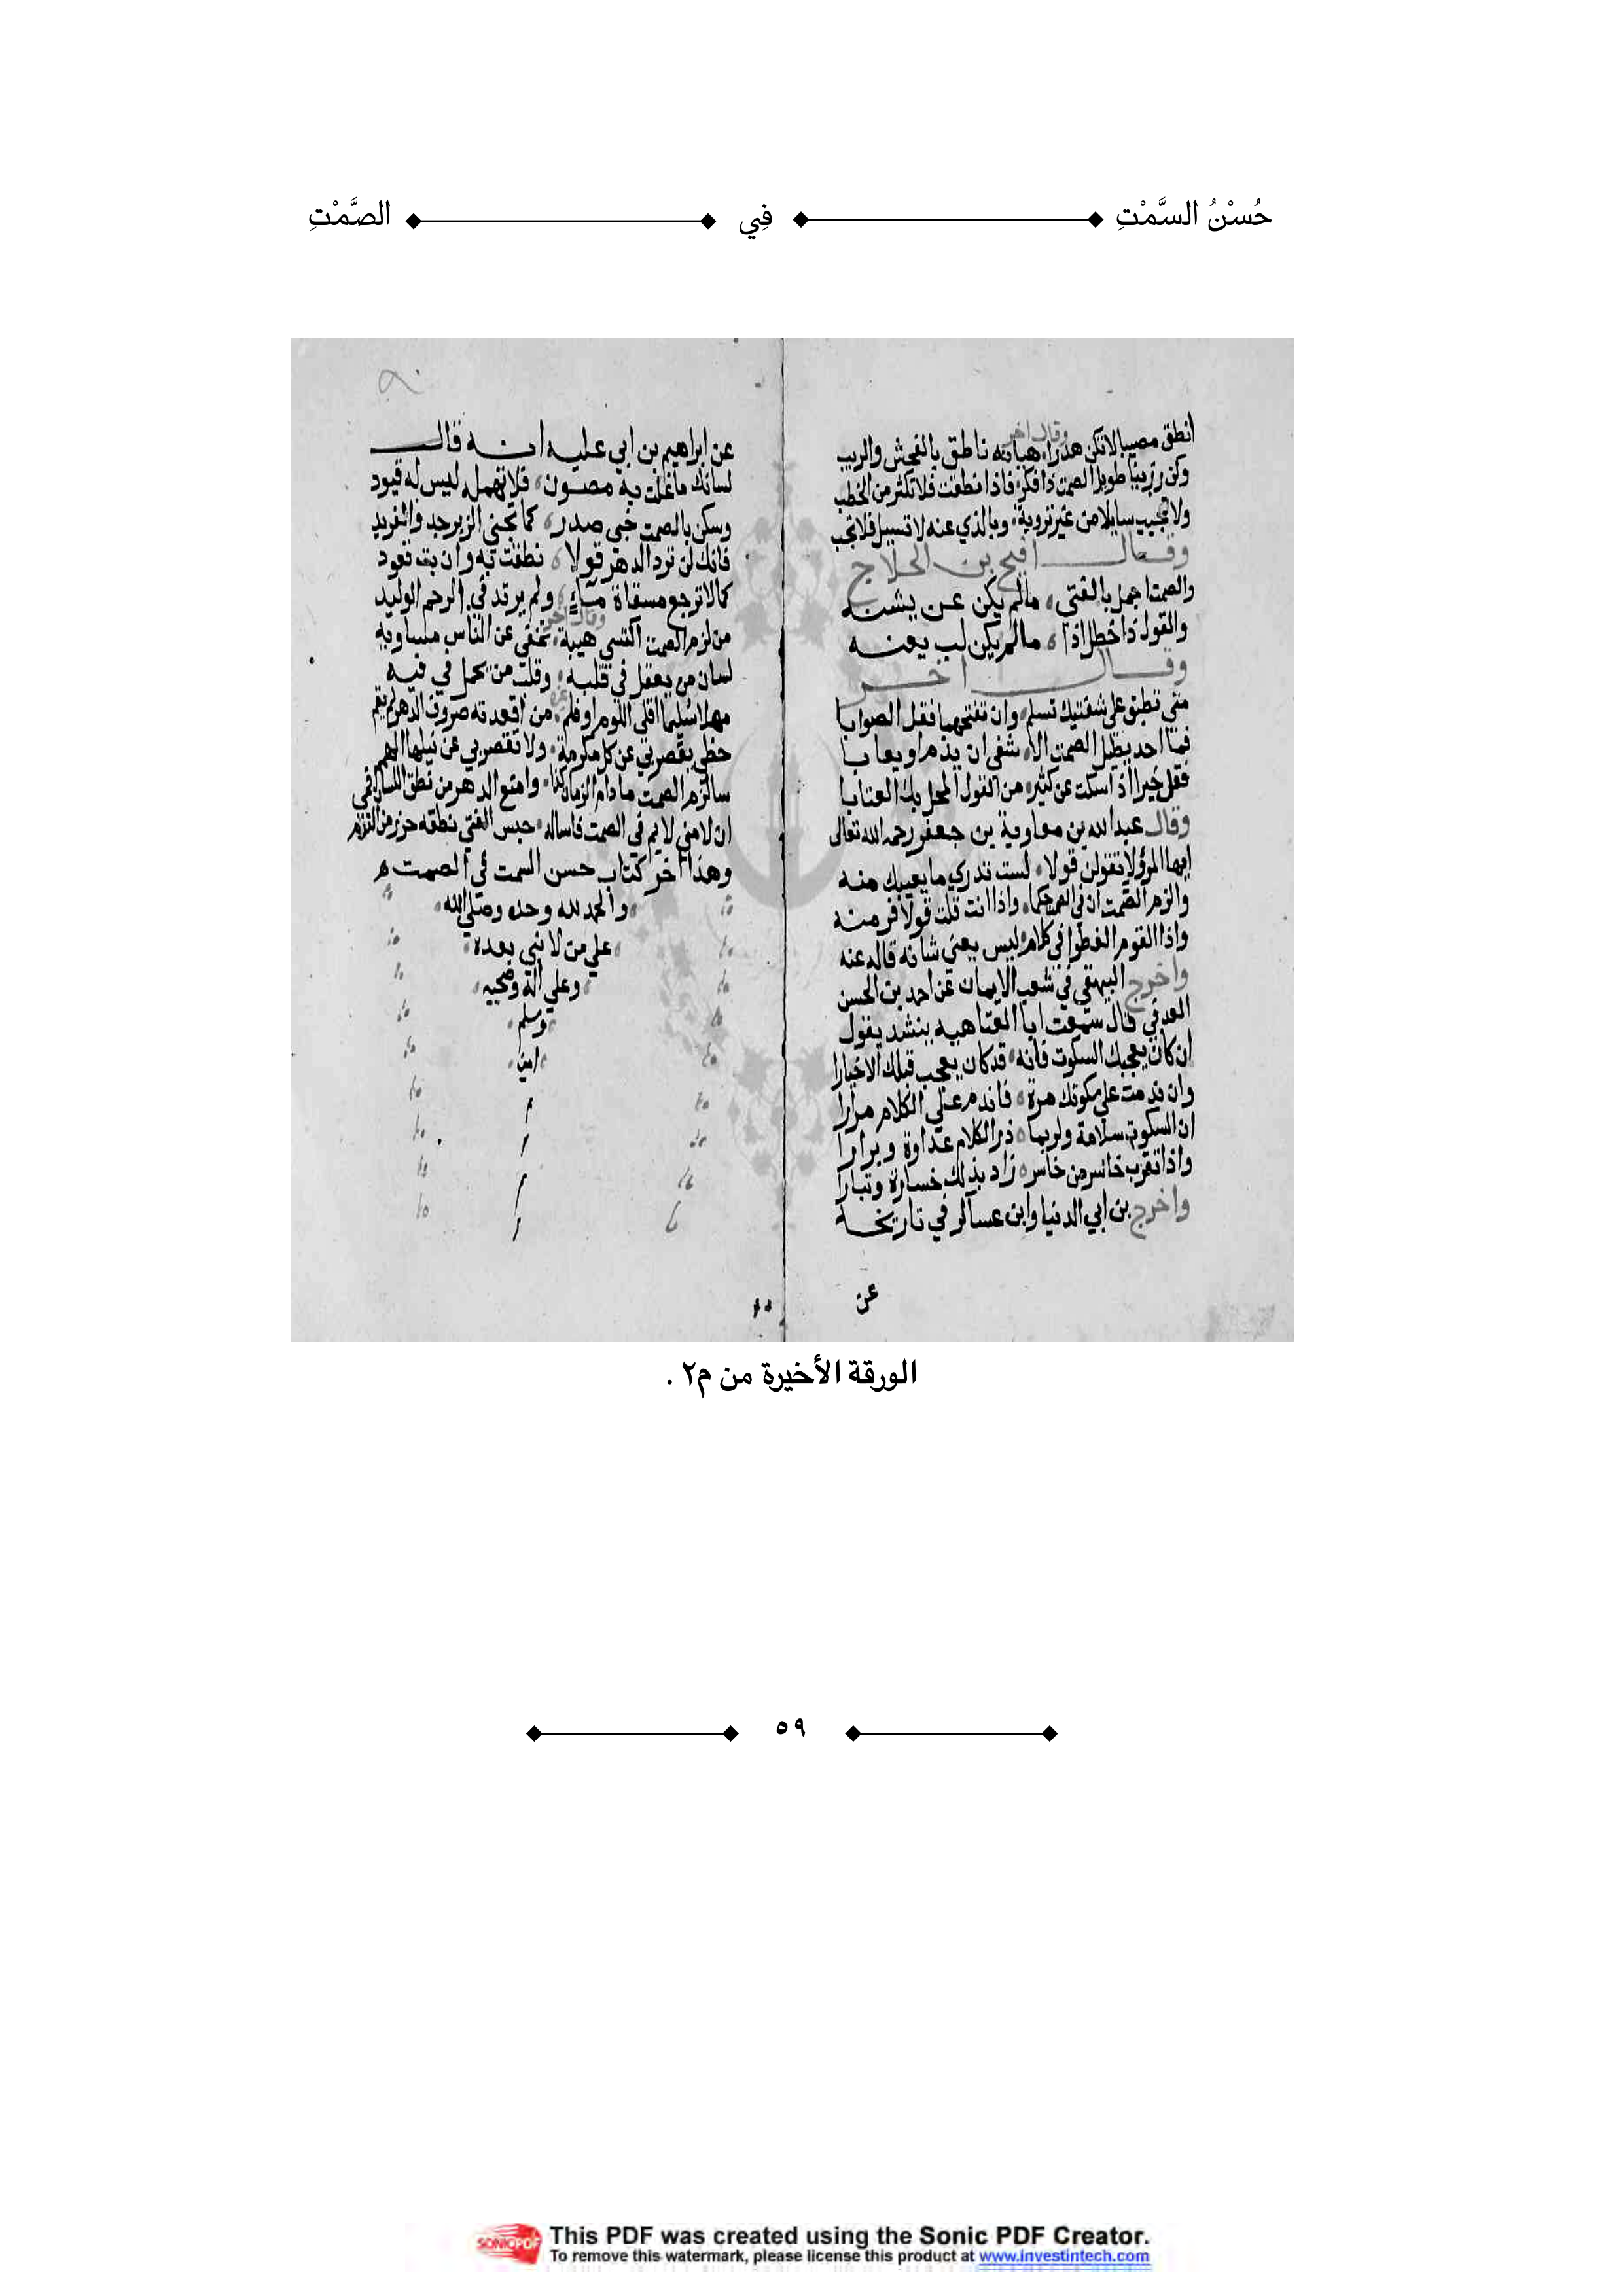 حُسْنُ السَّمْتِ فِي الصَّمْتِ
انطق مصيبا لا تكن هذرا هبابه ناطق بالفحش والريب
وقال اخر
وكن رزينا طويل الصمت ذا فكر فاذا نطقت فلا تكثر من الخطب
ولا تجيب سايلا من غير تروية وبالذي عنه لا تسيل فلا تجب
وقال بن الحلاج
والصمت اجمل بالفتي مالم يكن عن يشنه
والقول ذا خطل اذا مالم يكن لب يعنه
وقال اخر
متي تطبق علي شفتيك تسلم وان تفتحهما فقل الصوابا
فما احد يطيل الصمت الا ان يذم او يعابا
فقل خيرا او اسكت عن كثير من القول المحل بك العتابا
وقال عبد الله بن معاوية بن جعفر رحمه الله تعالي
ايها المرؤ لا تقولن قولا لست تدري ما يعيبك منه
والزم الصمت ان في الصمت حكما واذا انت قلت قولا فزمنه
واذا القوم الغطوا في كلام ليس يعني شانه فاله عنه
واخرج البيهقي في شعب الايمان عن احمد بن الحسن
العدني قال سمعت ابا العتاهيه ينشد يقول
ان كان يعجبك السكوت فانه قد كان يعجب قبلك الاخيارا
وان ندمت علي سكوتك مرة فاندم علي الكلام مرارا
ان السكوت سلامة ولربما ذر الكلام عداوة وبرارا
واذا تقرب خاسر من خاسر زاد بذلك خسارة وتبارا
واخرج بن ابي الدنيا وابن عساكر في تاريخه
عن
عن ابراهيم بن ابي عليه انه قال
لسانك ما بخلت به مصون فلا تهمله ليس له قيود
وسكن بالصمت خبي صدر كما يخبي الزبرجد والفريد
فانك لن ترد الدهر قولا نطقت به وان بعت تعود
كما لا ترجع مسقاة ماء ولم يرتد في الرحم الوليد
وقال اخر
من لزم الصمت اكتسي هيبة تخفي عن الناس مساويه
لسان من يعقل في قلبه وقلب من يجهل في فيه
مهلا سليما اقلي اللوم او فلم من اقعدته صروف الدهر لم يقم
حظي يقصر بي عن كل مكرمة ولا تقصر بي عن نيلها الهمم
سالزم الصمت مادام الزمان كذا وامنع الدهر من نطق اللسان فمي
ان لامني لايم في الصمت فاساله حبس الفتي نطقه حرز من الندم
وهذا اخر كتاب حسن السمت في الصمت
والحمد لله وحده وصلي الله
علي من لا نبي بعده
وعلي اله وصحبه
وسلم
امين
الورقة الأخيرة من م٢ .
٥٩
SONICPDF
This PDF was created using the Sonic PDF Creator.
To remove this watermark, please license this product at www.investintech.com